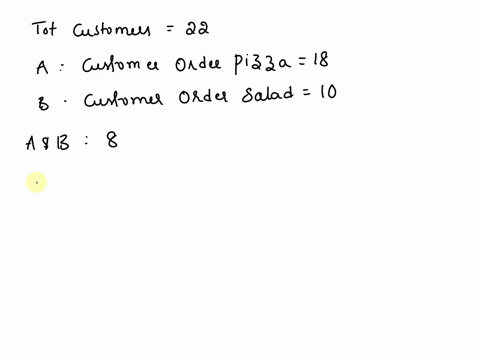 Tot Customers = 22
A : Customer Order Pizza = 18
B . Customer Order Salad = 10
A & B : 8